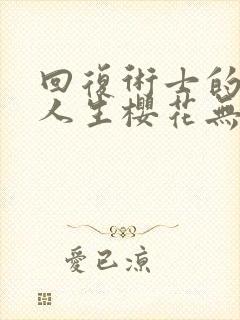 回復術士的
人生櫻花無
愛已涼